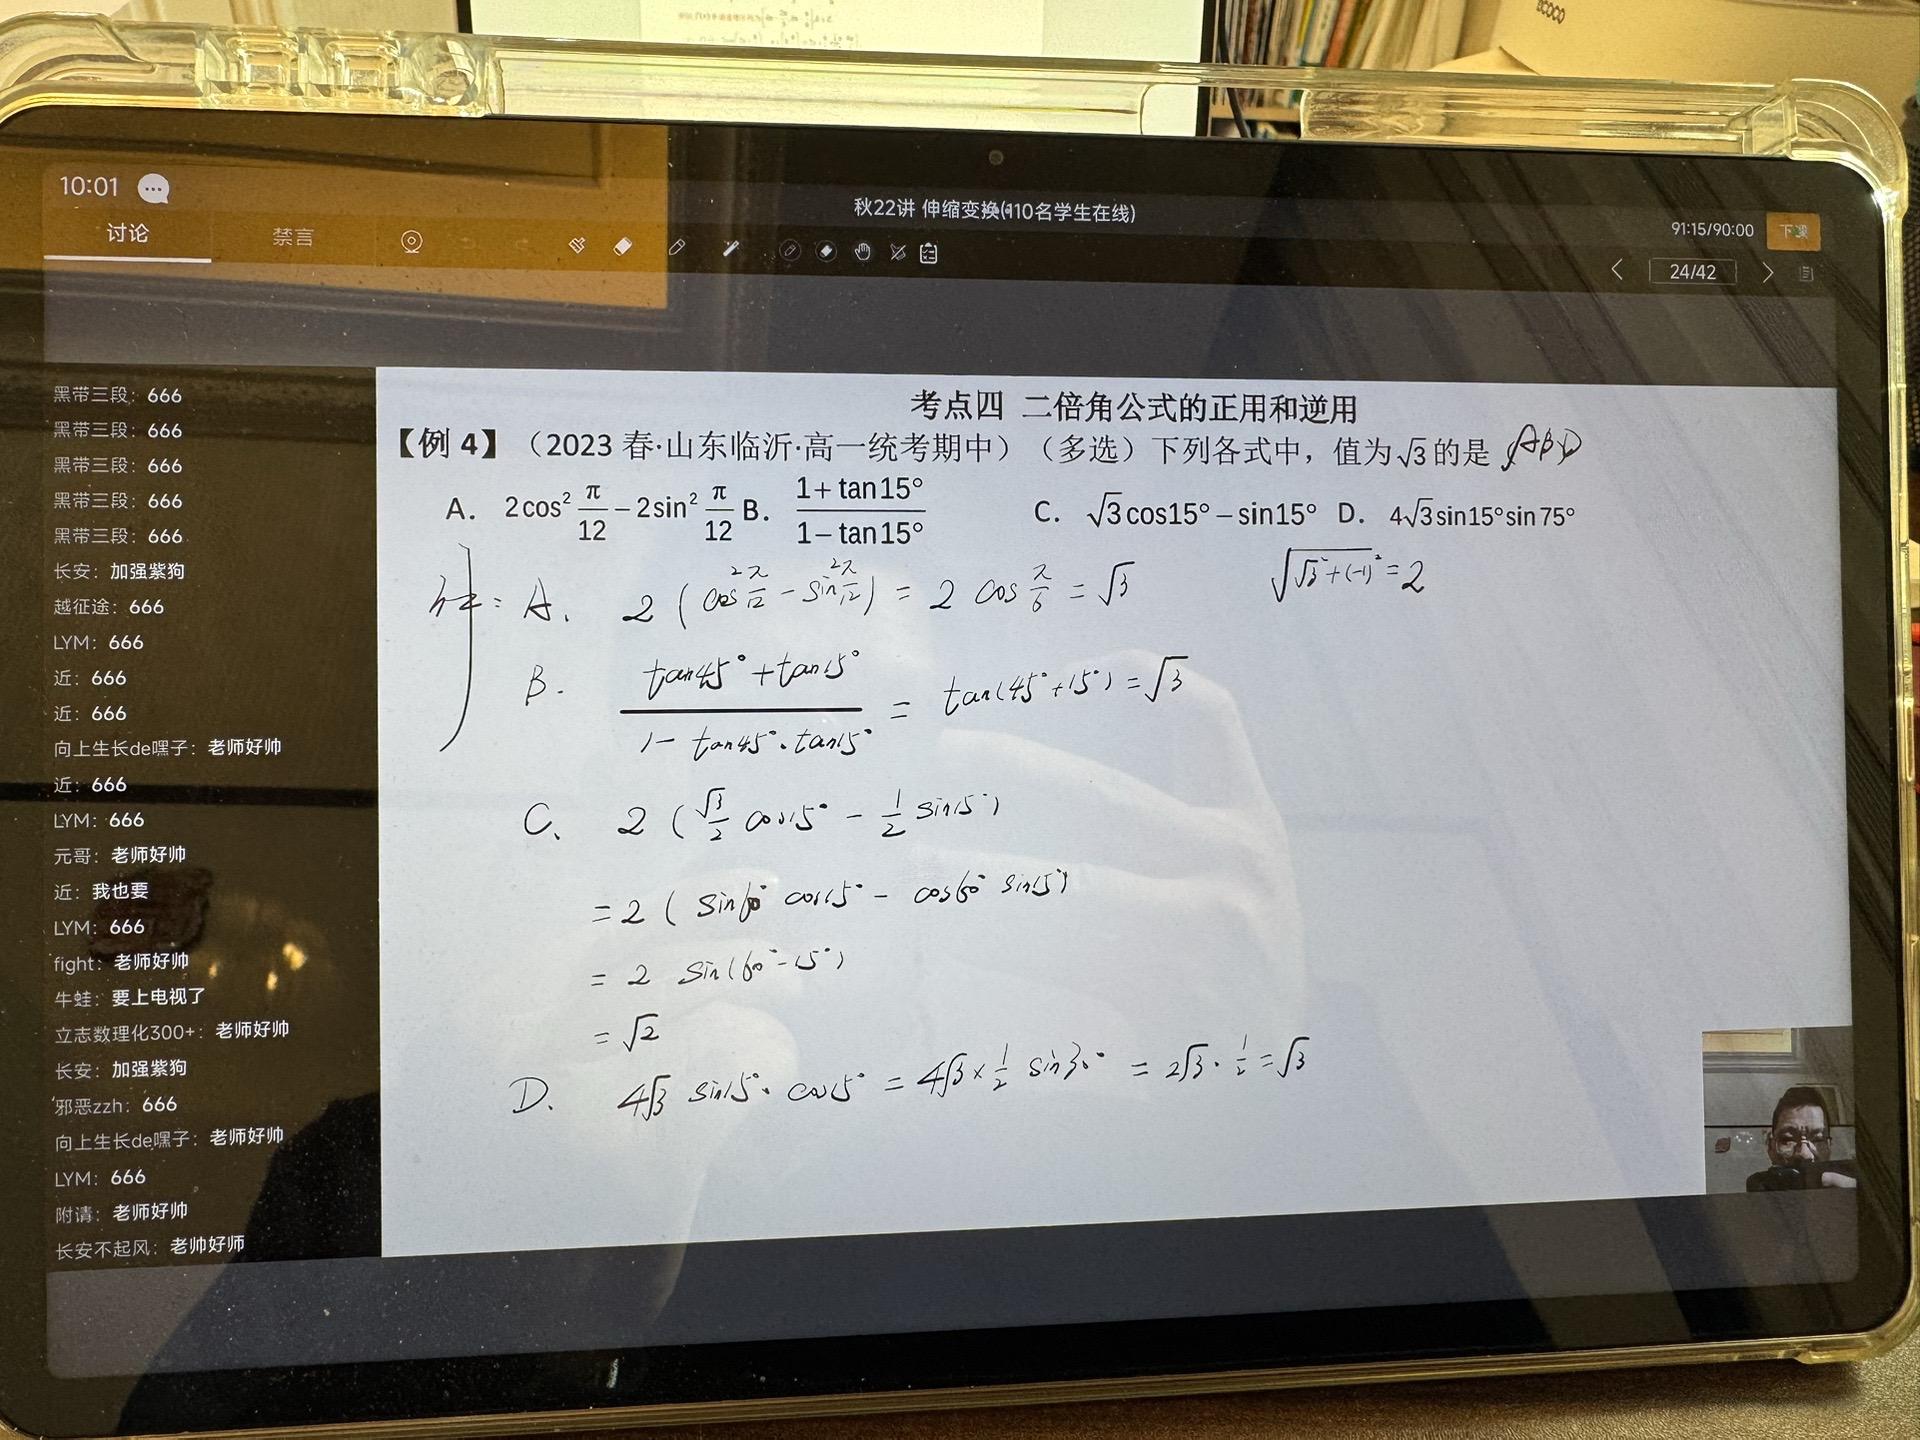 10:01
秋22讲 伸缩变换(110名学生在线)
91:15/90:00 下课
讨论 禁言
24/42
黑带三段：666
黑带三段：666
黑带三段：666
黑带三段：666
黑带三段：666
长安：加强紫狗
越征途：666
LYM：666
近：666
近：666
向上生长de嘿子：老师好帅
近：666
LYM：666
元哥：老师好帅
近：我也要
LYM：666
fight：老师好帅
牛蛙：要上电视了
立志数理化300+：老师好帅
长安：加强紫狗
邪恶zzh：666
向上生长de嘿子：老师好帅
LYM：666
附请：老师好帅
长安不起风：老帅好师
考点四 二倍角公式的正用和逆用
【例 4】（2023 春·山东临沂·高一统考期中）（多选）下列各式中，值为√3的是 ABD
A. 2cos² π/12 − 2sin² π/12 B. (1+tan15°)/(1−tan15°) C. √3cos15°−sin15° D. 4√3sin15°sin75°
解：A. 2(cos² π/12 − sin² π/12) = 2cos π/6 = √3
√(√3²+(-1)²) = 2
B. (tan45°+tan15°)/(1−tan45°·tan15°) = tan(45°+15°) = √3
C. 2(√3/2 cos15° − 1/2 sin15°)
= 2(sin60° cos15° − cos60° sin15°)
= 2 sin(60°−15°)
= √2
D. 4√3 sin15°·cos15° = 4√3×1/2 sin30° = 2√3·1/2 = √3